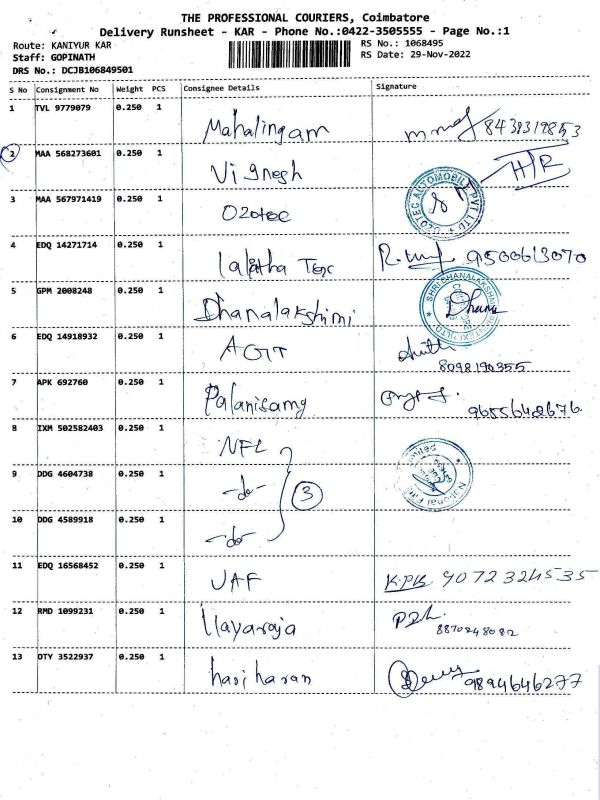 THE PROFESSIONAL COURIERS, Coimbatore
Delivery Runsheet - KAR - Phone No.:0422-3505555 - Page No.:1
Route: KANIYUR KAR RS No.: 1068495
Staff: GOPINATH RS Date: 29-Nov-2022
DRS No.: DCJB106849501
S No Consignment No Weight PCS Consignee Details Signature
1 TVL 9779079 0.250 1 Mahalingam
2 MAA 568273601 0.250 1 Vignesh H/R
3 MAA 567971419 0.250 1 Ozotec OZOTEC AUTOMOBILE PVT LTD
4 EDQ 14271714 0.250 1 Lalitha 9500613070
5 GPM 2008248 0.250 1 Dhanalakshimi SHRI DHANALAKSHMI Dhana
6 EDQ 14918932 0.250 1 AGIT
8098190355
7 APK 692760 0.250 1 Palanisamy 9655648676
8 IXM 502582403 0.250 1 NFL
9 DDG 4604738 0.250 1 -do- 3
10 DDG 4589918 0.250 1 -do-
11 EDQ 16568452 0.250 1 UAF 9072324535
12 RMD 1099231 0.250 1 Ilayaraja
8870248082
13 OTY 3522937 0.250 1 hariharan 9894646277